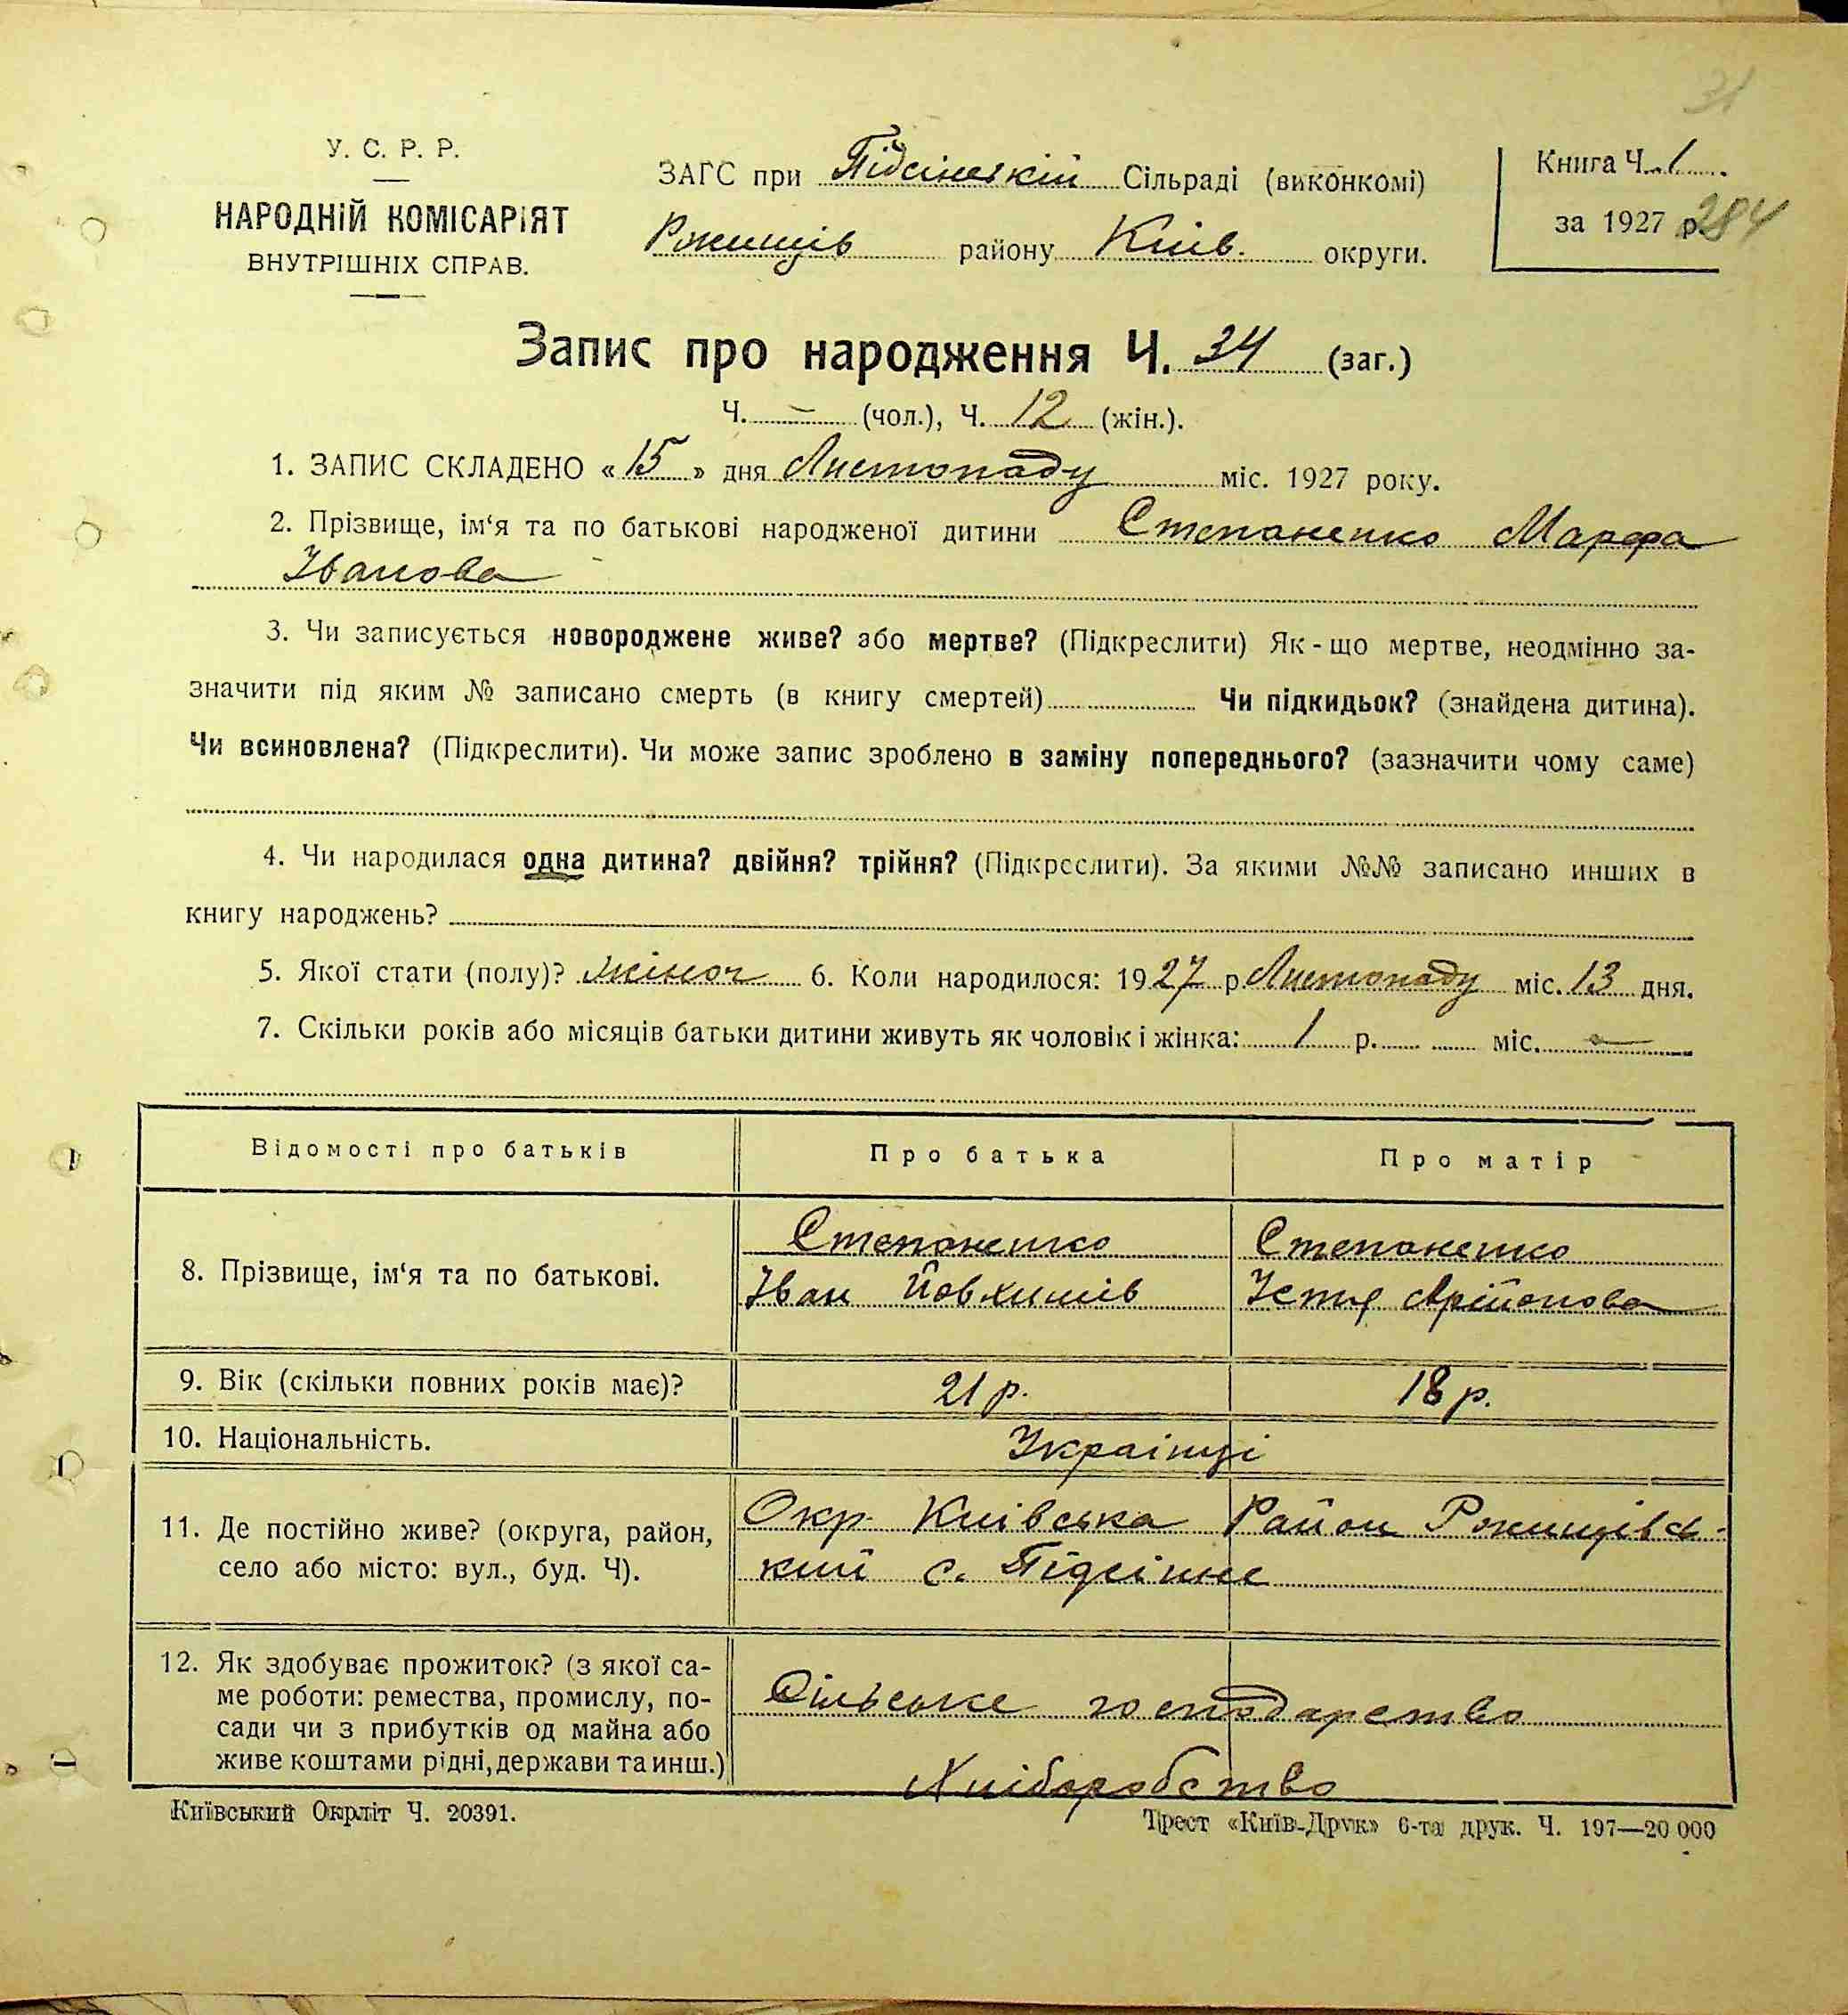 31
У. С. Р. Р.
НАРОДНІЙ КОМІСАРІЯТ
ВНУТРІШНІХ СПРАВ.
ЗАГС при Підсінській Сільраді (виконкомі)
Ржищів району Київ. округи.
Книга Ч. 1
за 1927 р. 284
Запис про народження Ч. 34 (заг.)
Ч. – (чол.), Ч. 12 (жін.).
1. ЗАПИС СКЛАДЕНО «15» дня Листопаду міс. 1927 року.
2. Прізвище, ім‘я та по батькові народженої дитини Степаненко Марфа
Іванова
3. Чи записується новороджене живе? або мертве? (Підкреслити) Як-що мертве, неодмінно за-
значити під яким № записано смерть (в книгу смертей) Чи підкидьок? (знайдена дитина).
Чи всиновлена? (Підкреслити). Чи може запис зроблено в заміну попереднього? (зазначити чому саме)
4. Чи народилася одна дитина? двійня? трійня? (Підкреслити). За якими №№ записано инших в
книгу народжень?
5. Якої стати (полу)? жіноч 6. Коли народилося: 1927 р Листопаду міс. 13 дня.
7. Скільки років або місяців батьки дитини живуть як чоловік і жінка: 1 р. міс. –
Відомості про батьків Про батька Про матір
8. Прізвище, ім‘я та по батькові.
Степаненко Степаненко
Іван Йовхимів Устя
9. Вік (скільки повних років має)? 21 р. 18 р.
10. Національність. Українці
11. Де постійно живе? (округа, район,
село або місто: вул., буд. Ч).
Окр. Київська Район Ржищівсь-
кий с. Підсінне
12. Як здобуває прожиток? (з якої са-
ме роботи: ремества, промислу, по-
сади чи з прибутків од майна або
живе коштами рідні, держави та инш.)
Сільське господарство
Хліборобство
Київський Окрліт Ч. 20391.
Трест «Київ-Друк» 6-та друк. Ч. 197—20 000